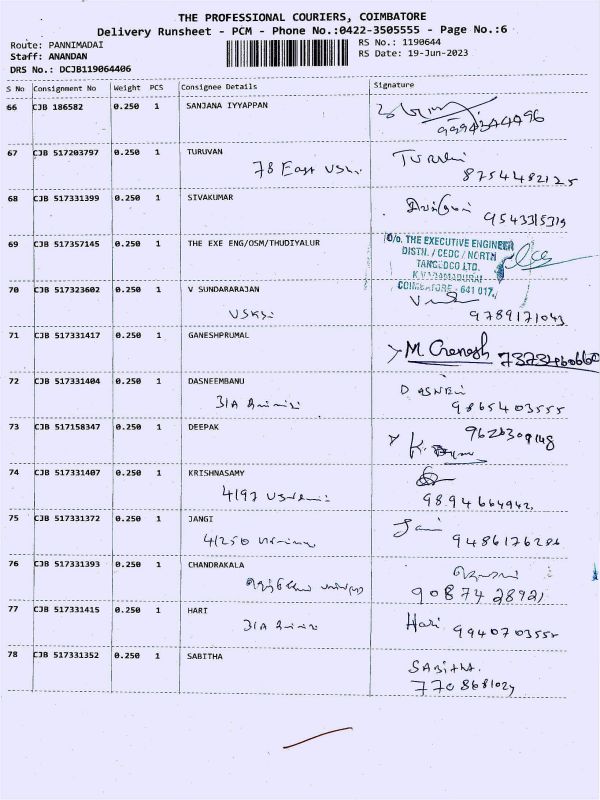 THE PROFESSIONAL COURIERS, COIMBATORE
Delivery Runsheet - PCM - Phone No.:0422-3505555 - Page No.:6
Route: PANNIMADAI
RS No.: 1190644
Staff: ANANDAN
RS Date: 19-Jun-2023
DRS No.: DCJB119064406
S No Consignment No Weight PCS Consignee Details Signature
66 CJB 186582 0.250 1 SANJANA IYYAPPAN
9994344496
67 CJB 517203797 0.250 1 TURUVAN
78 East
8754482125
68 CJB 517331399 0.250 1 SIVAKUMAR
9543315319
69 CJB 517357145 0.250 1 THE EXE ENG/OSM/THUDIYALUR
O/o. THE EXECUTIVE ENGINEER
DISTN. / CEDC / NORTH
TANGEDCO LTD.
COIMBATORE - 641 017.
70 CJB 517323602 0.250 1 V SUNDARARAJAN
9789171043
71 CJB 517331417 0.250 1 GANESHPRUMAL
M. Ganesh
72 CJB 517331404 0.250 1 DASNEEMBANU
31A
9865403555
73 CJB 517158347 0.250 1 DEEPAK
9626309148
74 CJB 517331407 0.250 1 KRISHNASAMY
4197
9894664942
75 CJB 517331372 0.250 1 JANGI
4/250
9486176286
76 CJB 517331393 0.250 1 CHANDRAKALA
9087428921
77 CJB 517331415 0.250 1 HARI
Hari 9940703555
31A
78 CJB 517331352 0.250 1 SABITHA
SABitha.
7708681029